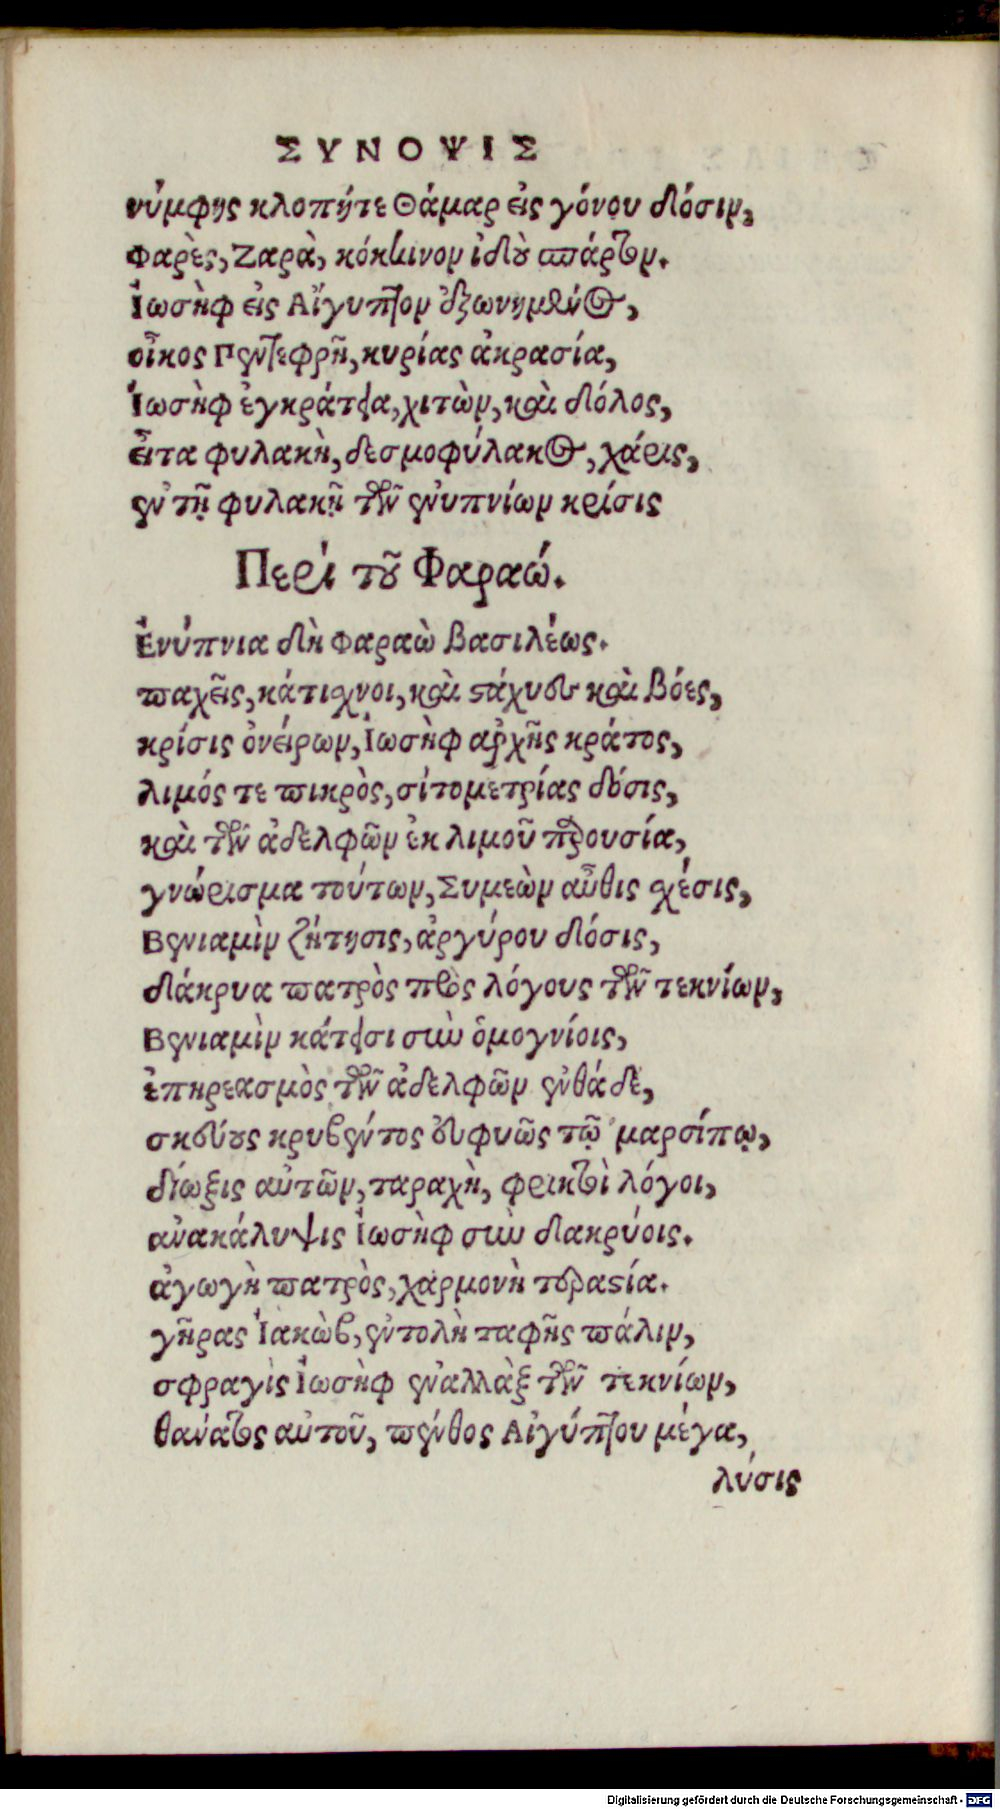 ΣΥΝΟΨΙΣ
νύμφης κλοπήτε Θάμαρ εἰς γόνου δόσιν,
Φαρὲς, Ζαρὰ, κόκκινον ἰδοὺ σπάρτον.
Ἰωσὴφ εἰς Αἴγυπτον ἐξωνημένος,
οἶκος Πεντεφρῆ, κυρίας ἀκρασία,
Ἰωσὴφ ἐγκράτεια, χιτὼν, καὶ δόλος,
εἶτα φυλακὴ, δεσμοφύλακος, χάρις,
ἐν τῇ φυλακῇ τῶν ἐνυπνίων κρίσις
Περὶ τοῦ Φαραώ.
Ἐνύπνια δὴ Φαραὼ βασιλέως.
παχεῖς, κάτισχνοι, καὶ στάχυες καὶ βόες,
κρίσις ὀνείρων, Ἰωσὴφ ἀρχῆς κράτος,
λιμός τε πικρὸς, σίτομετρίας δόσις,
καὶ τῶν ἀδελφῶν ἐκ λιμοῦ παρουσία,
γνώρισμα τούτων, Συμεὼν αὖθις σχέσις,
Βενιαμὶν ζήτησις, ἀργύρου δόσις,
δάκρυα πατρὸς πρὸς λόγους τῶν τεκνίων,
Βενιαμὶν κάτεισι σὺν ὁμογνίοις,
ἐπηρεασμὸς τῶν ἀδελφῶν ἐνθάδε,
σκεύους κρυβέντος εὐφυῶς τῷ μαρσίπῳ,
δίωξις αὐτῶν, ταραχὴ, φρικτοὶ λόγοι,
ἀνακάλυψις Ἰωσὴφ σὺν δακρύοις.
ἀγωγὴ πατρὸς, χαρμονὴ τεραστία.
γῆρας Ἰακὼβ, ἐντολὴ ταφῆς πάλιν,
σφραγὶς Ἰωσὴφ ἐναλλὰξ τῶν τεκνίων,
θάνατος αὐτοῦ, πένθος Αἰγύπτου μέγα,
λύσις
Digitalisierung gefördert durch die Deutsche Forschungsgemeinschaft - DFG